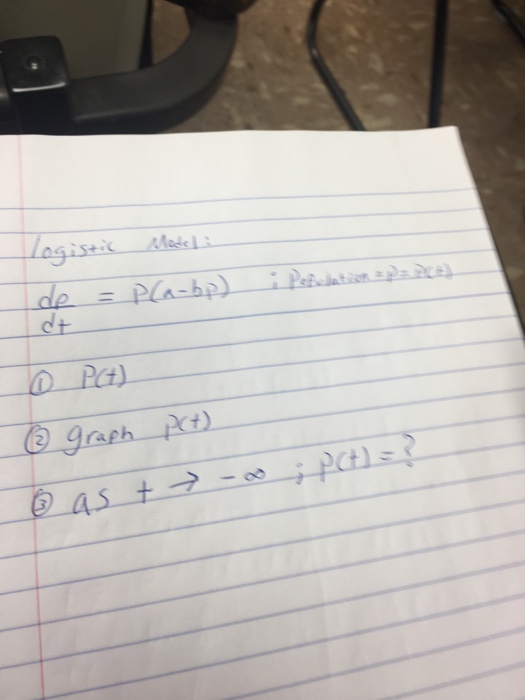 logistic Model:
dp/dt = P(a-bp) ; Population = p = P(t)
① P(t)
② graph p(t)
③ as t → -∞ ; p(t) = ?